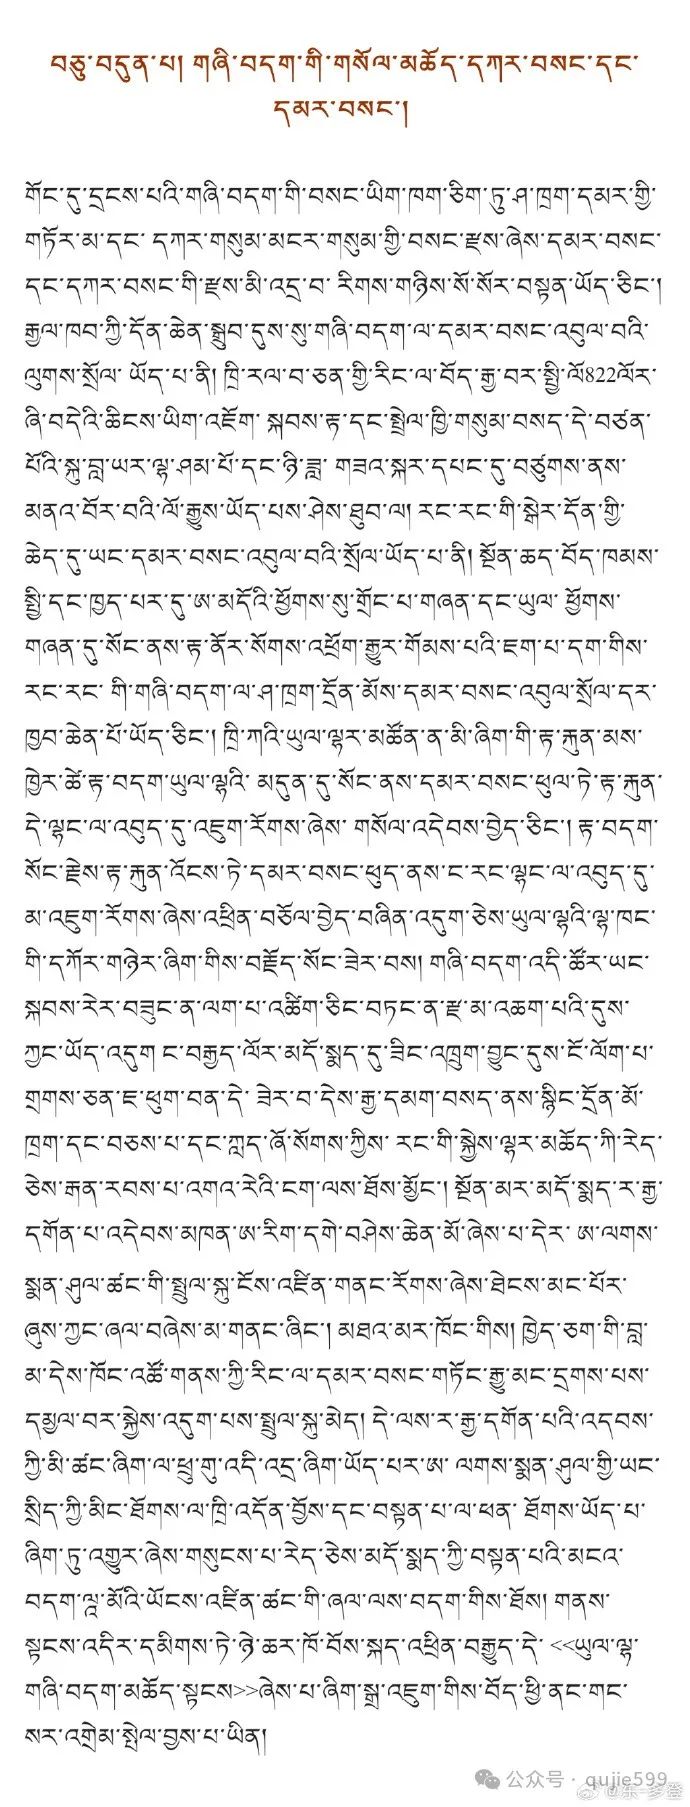 བཅུ་བདུན་པ། གཞི་བདག་གི་གསོལ་མཆོད་དཀར་བསང་དང་
དམར་བསང་།
གོང་དུ་དྲངས་པའི་གཞི་བདག་གི་བསང་ཡིག་ཁག་ཅིག་ཏུ་ཤ་ཁྲག་དམར་གྱི་
གཏོར་མ་དང་ དཀར་གསུམ་མངར་གསུམ་གྱི་བསང་རྫས་ཞེས་དམར་བསང་
དང་དཀར་བསང་གི་རྫས་མི་འདྲ་བ་ རིགས་གཉིས་སོ་སོར་བསྟན་ཡོད་ཅིང་།
རྒྱལ་ཁབ་ཀྱི་དོན་ཆེན་སྒྲུབ་དུས་སུ་གཞི་བདག་ལ་དམར་བསང་འབུལ་བའི་
ལུགས་སྲོལ་ ཡོད་པ་ནི། ཁྲི་རལ་བ་ཅན་གྱི་རིང་ལ་བོད་རྒྱ་བར་སྤྱི་ལོ822ལོར་
ཞི་བདེའི་ཆིངས་ཡིག་འཇོག་ སྐབས་རྟ་དང་སྤྲེལ་ཁྱི་གསུམ་བསད་དེ་བཙན་
པོའི་སྐུ་བླ་ཡར་ལྷ་ཤམ་པོ་དང་ཉི་ཟླ་ གཟའ་སྐར་དཔང་དུ་བཙུགས་ནས་
མནའ་བོར་བའི་ལོ་རྒྱུས་ཡོད་པས་ཤེས་ཐུབ་ལ། རང་རང་གི་སྒེར་དོན་གྱི་
ཆེད་དུ་ཡང་དམར་བསང་འབུལ་བའི་སྲོལ་ཡོད་པ་ནི། སྔོན་ཆད་བོད་ཁམས་
སྤྱི་དང་ཁྱད་པར་དུ་ཨ་མདོའི་ཕྱོགས་སུ་གྲོང་པ་གཞན་དང་ཡུལ་ ཕྱོགས་
གཞན་དུ་སོང་ནས་རྟ་ནོར་སོགས་འཕྲོག་རྒྱུར་གོམས་པའི་ཇག་པ་དག་གིས་
རང་རང་ གི་གཞི་བདག་ལ་ཤ་ཁྲག་དྲོན་མོས་དམར་བསང་འབུལ་སྲོལ་དར་
ཁྱབ་ཆེན་པོ་ཡོད་ཅིང་། ཁྲི་ཀའི་ཡུལ་ལྷར་མཚོན་ན་མི་ཞིག་གི་རྟ་རྐུན་མས་
ཁྱེར་ཚེ་རྟ་བདག་ཡུལ་ལྷའི་ མདུན་དུ་སོང་ནས་དམར་བསང་ཕུལ་ཏེ་རྟ་རྐུན་
དེ་ལྷང་ལ་འབུད་དུ་འཇུག་རོགས་ཞེས་ གསོལ་འདེབས་བྱེད་ཅིང་། རྟ་བདག་
སོང་རྗེས་རྟ་རྐུན་འོངས་ཏེ་དམར་བསང་ཕུད་ནས་ང་རང་ལྷང་ལ་འབུད་དུ་
མ་འཇུག་རོགས་ཞེས་འཕྲིན་བཅོལ་བྱེད་བཞིན་འདུག་ཅེས་ཡུལ་ལྷའི་ལྷ་ཁང་
གི་དཀོར་གཉེར་ཞིག་གིས་བརྗོད་སོང་ཟེར་བས། གཞི་བདག་འདི་ཚོར་ཡང་
སྐབས་རེར་བཟུང་ན་ལག་པ་འཚིག་ཅིང་བཏང་ན་རྫ་མ་འཆག་པའི་དུས་
ཀྱང་ཡོད་འདུག ང་བརྒྱད་ལོར་མདོ་སྨད་དུ་ཟིང་འཁྲུག་བྱུང་དུས་ངོ་ལོག་པ་
གྲགས་ཅན་ཇ་ཕུག་བན་དེ་ ཟེར་བ་དེས་རྒྱ་དམག་བསད་ནས་སྙིང་དྲོན་མོ་
ཁྲག་དང་བཅས་པ་དང་ཀླད་ཞོ་སོགས་ཀྱིས་ རང་གི་སྐྱེས་ལྷར་མཆོད་ཀི་རེད་
ཅེས་རྒན་རབས་པ་འགའ་རེའི་ངག་ལས་ཐོས་མྱོང་། སྔོན་མར་མདོ་སྨད་ར་རྒྱ་
དགོན་པ་འདེབས་མཁན་ཨ་རིག་དགེ་བཤེས་ཆེན་མོ་ཞེས་པ་དེར་ ཨ་ལགས་
སྨན་ཤུལ་ཚང་གི་སྤྲུལ་སྐུ་ངོས་འཛིན་གནང་རོགས་ཞེས་ཐེངས་མང་པོར་
ཞུས་ཀྱང་ཞལ་བཞེས་མ་གནང་ཞིང་། མཐའ་མར་ཁོང་གིས། ཁྱེད་ཅག་གི་བླ་
མ་དེས་ཁོང་འཚོ་གནས་ཀྱི་རིང་ལ་དམར་བསང་གཏོང་རྒྱུ་མང་དྲགས་པས་
དམྱལ་བར་སྐྱེས་འདུག་པས་སྤྲུལ་སྐུ་མེད། དེ་ལས་ར་རྒྱ་དགོན་པའི་འདབས་
ཀྱི་མི་ཚང་ཞིག་ལ་ཕྲུ་གུ་འདི་འདྲ་ཞིག་ཡོད་པར་ཨ་ ལགས་སྨན་ཤུལ་གྱི་ཡང་
སྲིད་ཀྱི་མིང་ཐོགས་ལ་ཁྲི་འདོན་བྱོས་དང་བསྟན་པ་ལ་ཕན་ ཐོགས་ཡོད་པ་
ཞིག་ཏུ་འགྱུར་ཞེས་གསུངས་པ་རེད་ཅེས་མདོ་སྨད་ཀྱི་བསྟན་པའི་མངའ་
བདག་ལྭ་མོའི་ཡོངས་འཛིན་ཚང་གི་ཞལ་ལས་བདག་གིས་ཐོས། གནས་
སྟངས་འདིར་དམིགས་ཏེ་ཉེ་ཆར་ཁོ་བོས་སྐད་འཕྲིན་བརྒྱུད་དེ་ <<ཡུལ་ལྷ་
གཞི་བདག་མཆོད་སྟངས>>ཞེས་པ་ཞིག་སྒྲ་འཇུག་གིས་བོད་ཕྱི་ནང་གང་
སར་འགྲེམ་སྤེལ་བྱས་པ་ཡིན།
公众号 · qujie599
@东—多登